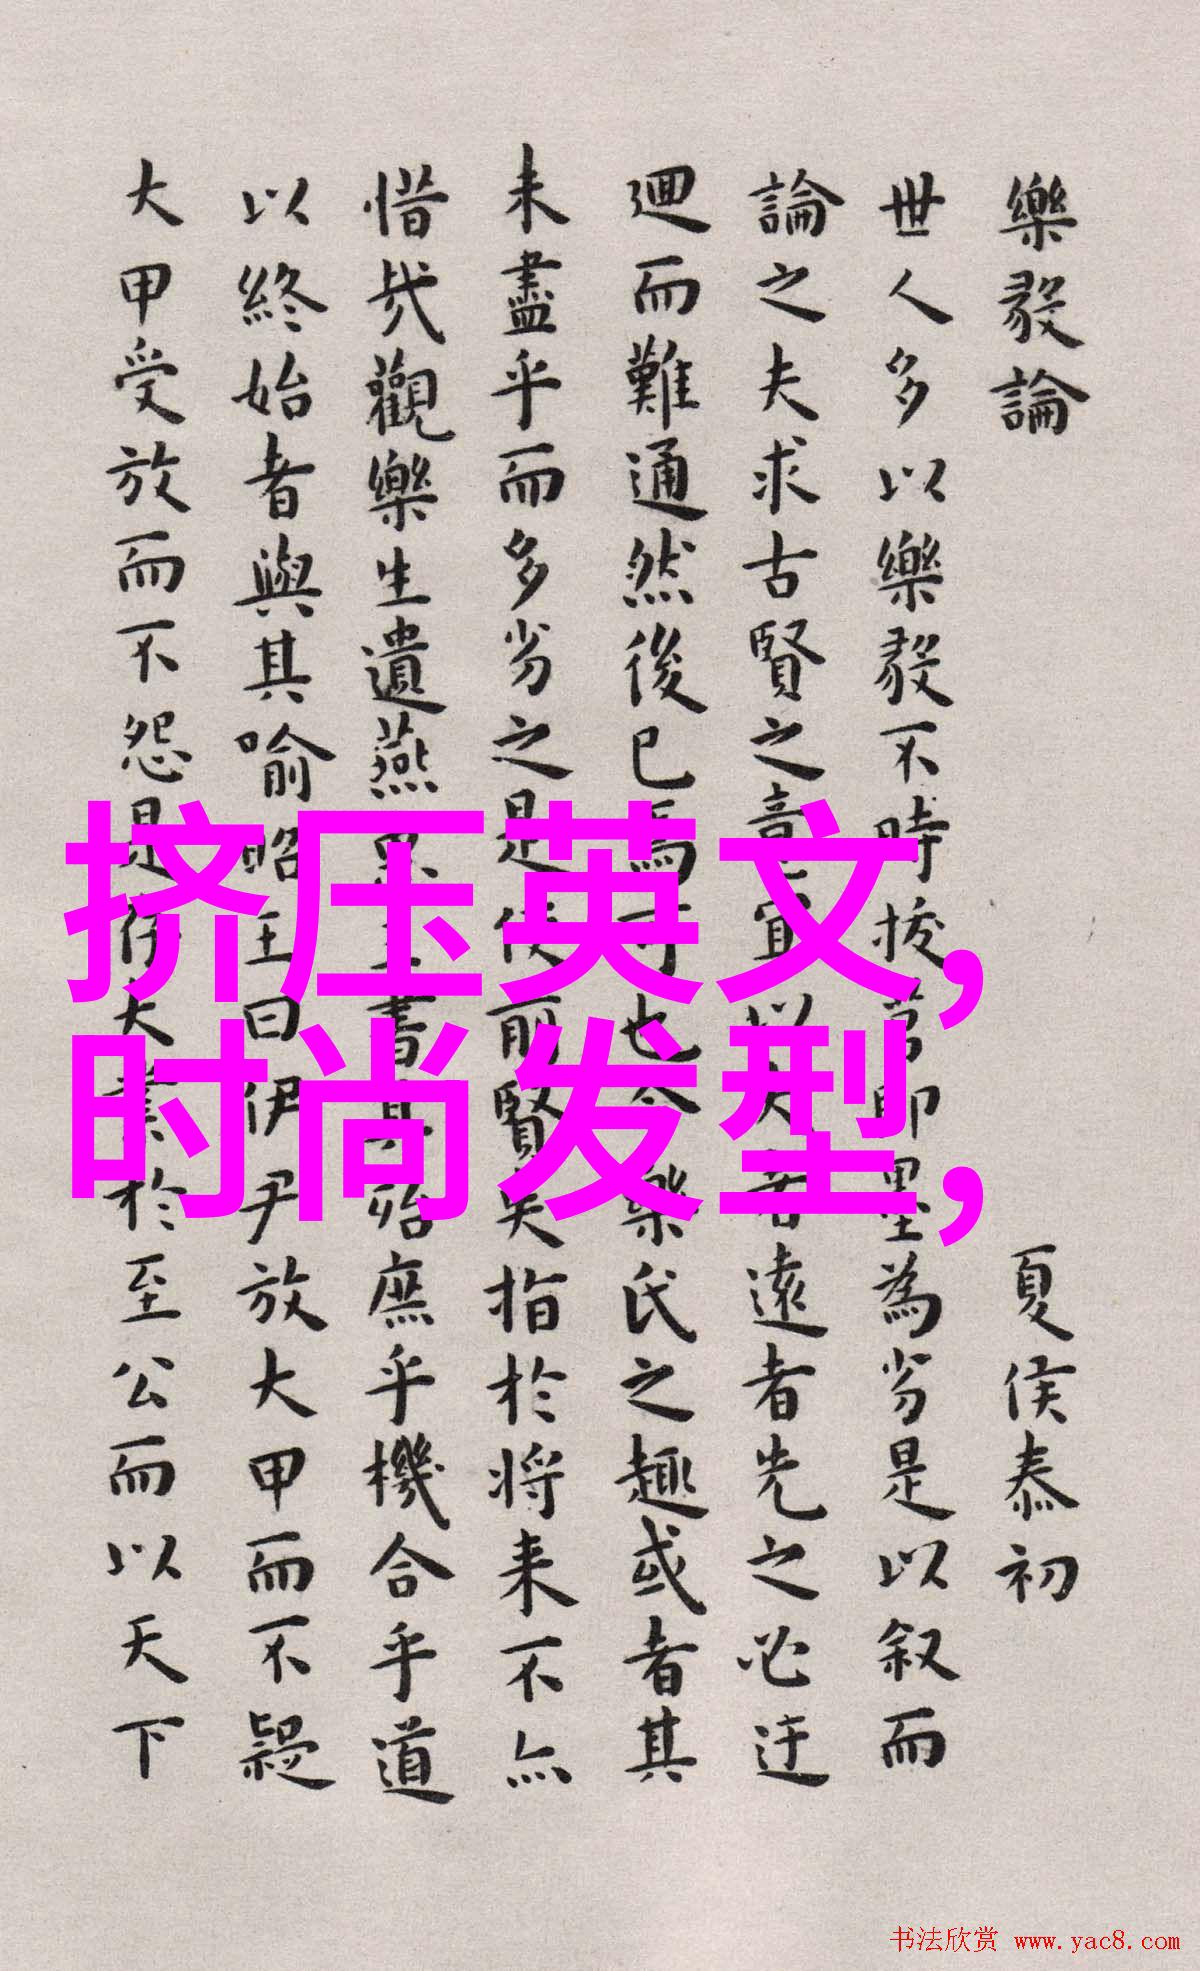 樂毅論
夏侯泰初
世人多以樂毅不時拔莒即墨為劣是以叙而
論之夫求古賢之意宜以大者遠者先之必迂
迴而難通然後已焉可也今樂氏之趣或者其
未盡乎而多劣之是使前賢失指於将来不亦
惜哉觀樂生遺燕惠王書其殆庶乎機合乎道
以終始者與其喻昭王曰伊尹放大甲而不疑
大甲受放而不怨是存大業於至公而以天下
挤压英文,
时尚发型,
书法欣赏 www.yac8.com